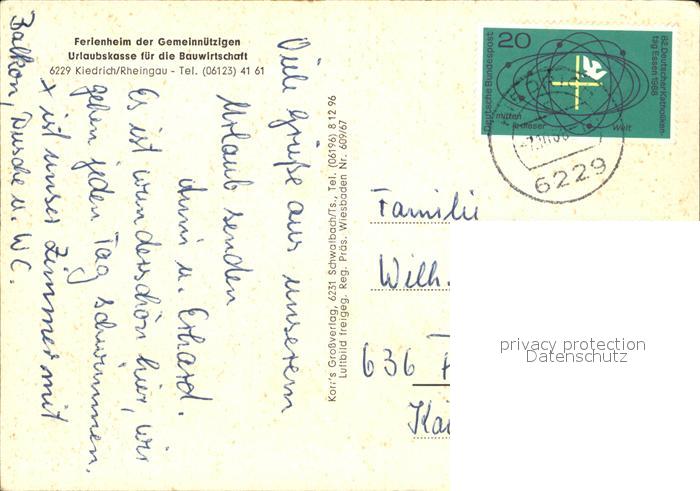 Ferienheim der Gemeinnützigen
Urlaubskasse für die Bauwirtschaft
6229 Kiedrich/Rheingau - Tel. (06123) 41 61
Viele Grüße aus unserem
Urlaub senden
Anni u. Erhard.
Es ist wunderschön hier, wir
gehen jeden Tag schwimmen.
x ist unser Zimmer mit
Balkon, Dusche u. WC.
Korr's Großverlag, 6231 Schwalbach/Ts., Tel. (06196) 8 12 96
Luftbild freigeg. Reg. Präs. Wiesbaden Nr. 609/67
20
Deutsche Bundespost
82. Deutscher Katholiken-
tag Essen 1968
mitten
in dieser Welt
6229
Familie
Wilh.
636
Kai
privacy protection
Datenschutz